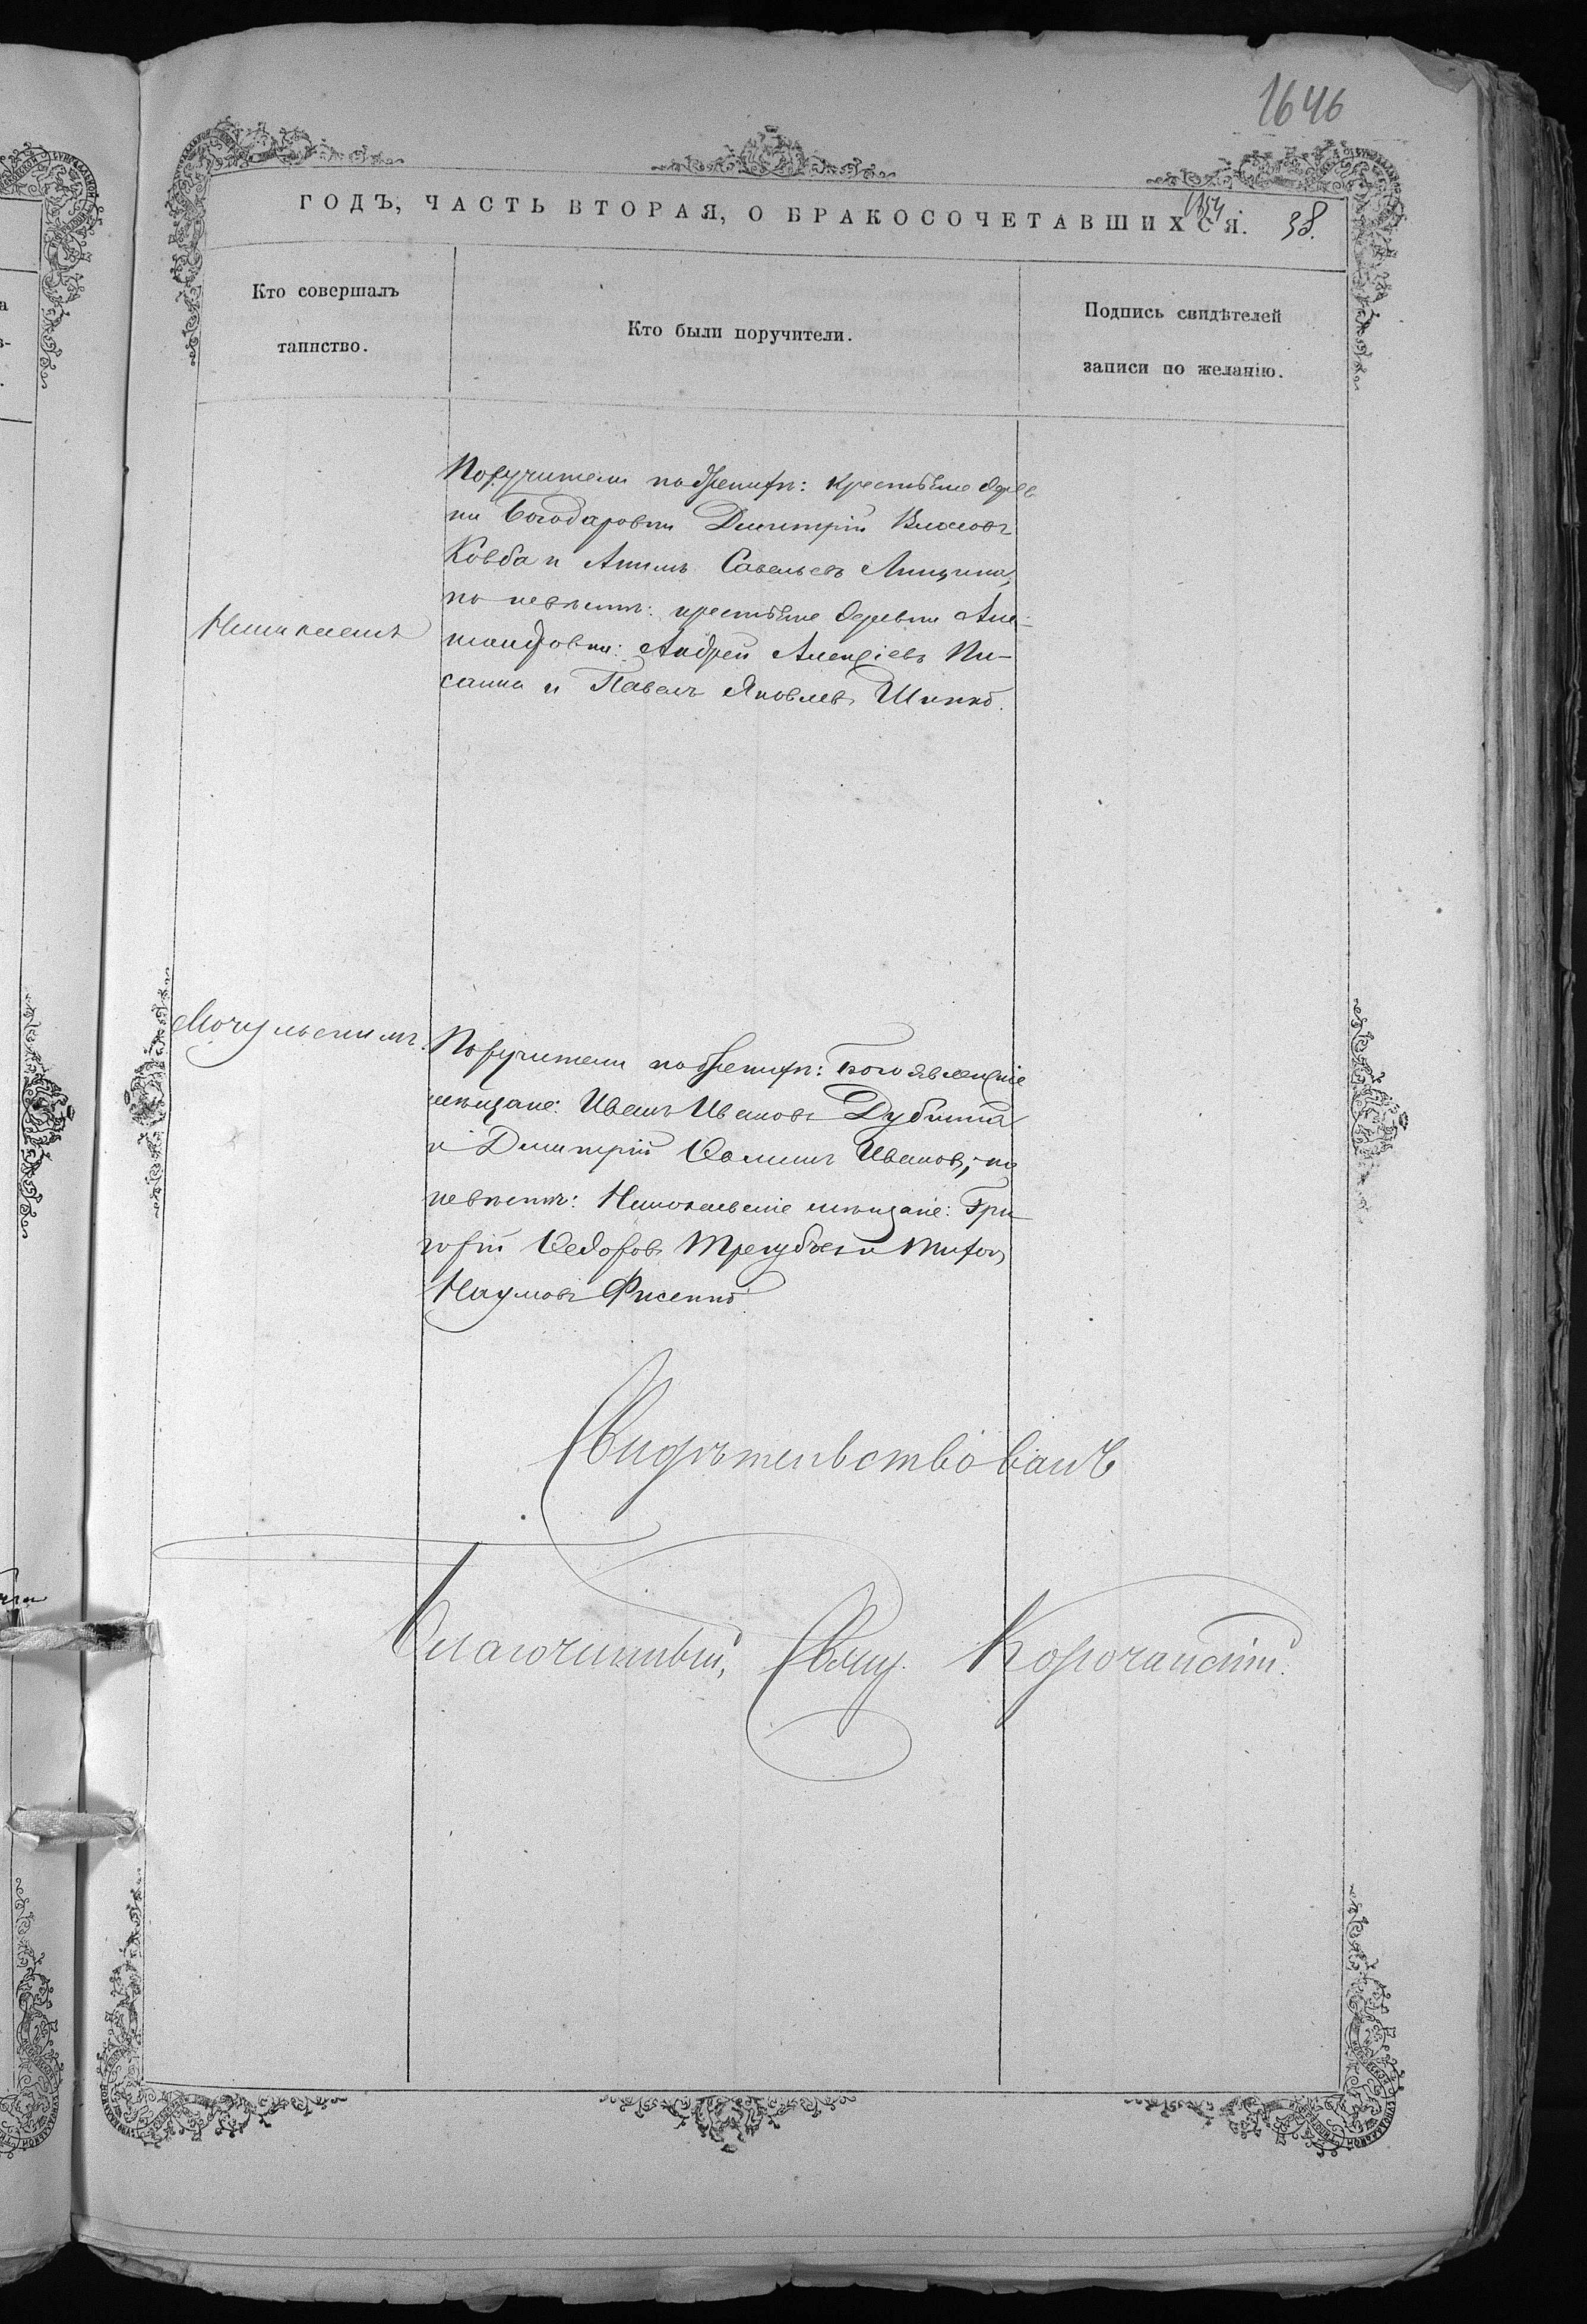 1646
ГОДЪ, ЧАСТЬ ВТОРАЯ, О БРАКОСОЧЕТАВШИХСЯ. 38.
Кто совершалъ
таинство.
Кто были поручители.
Подпись свидѣтелей
записи по желанію.
Поручители по женихѣ: крестьяне дерев
ни Богодаровки Димитрій
Ковба и Акимъ Савельевъ
по невѣстѣ: крестьяне деревни Але-
ксандровки: Андрей Алексіевъ Пи-
санка и Павелъ Яковлевъ
Мочульскимъ.
Поручители по женихѣ: Богоявленскіе
мѣщане: Иванъ Ивановъ Дубина
и Димитрій Ѳоминъ Ивановъ; по
невѣстѣ: Николаевскіе мѣщане: Гри
горій Ѳедоровъ Трегубовъ и
Наумовъ Фисенко.
Свидѣтельствовалъ
Благочинный, Свящ. Корочанскій.